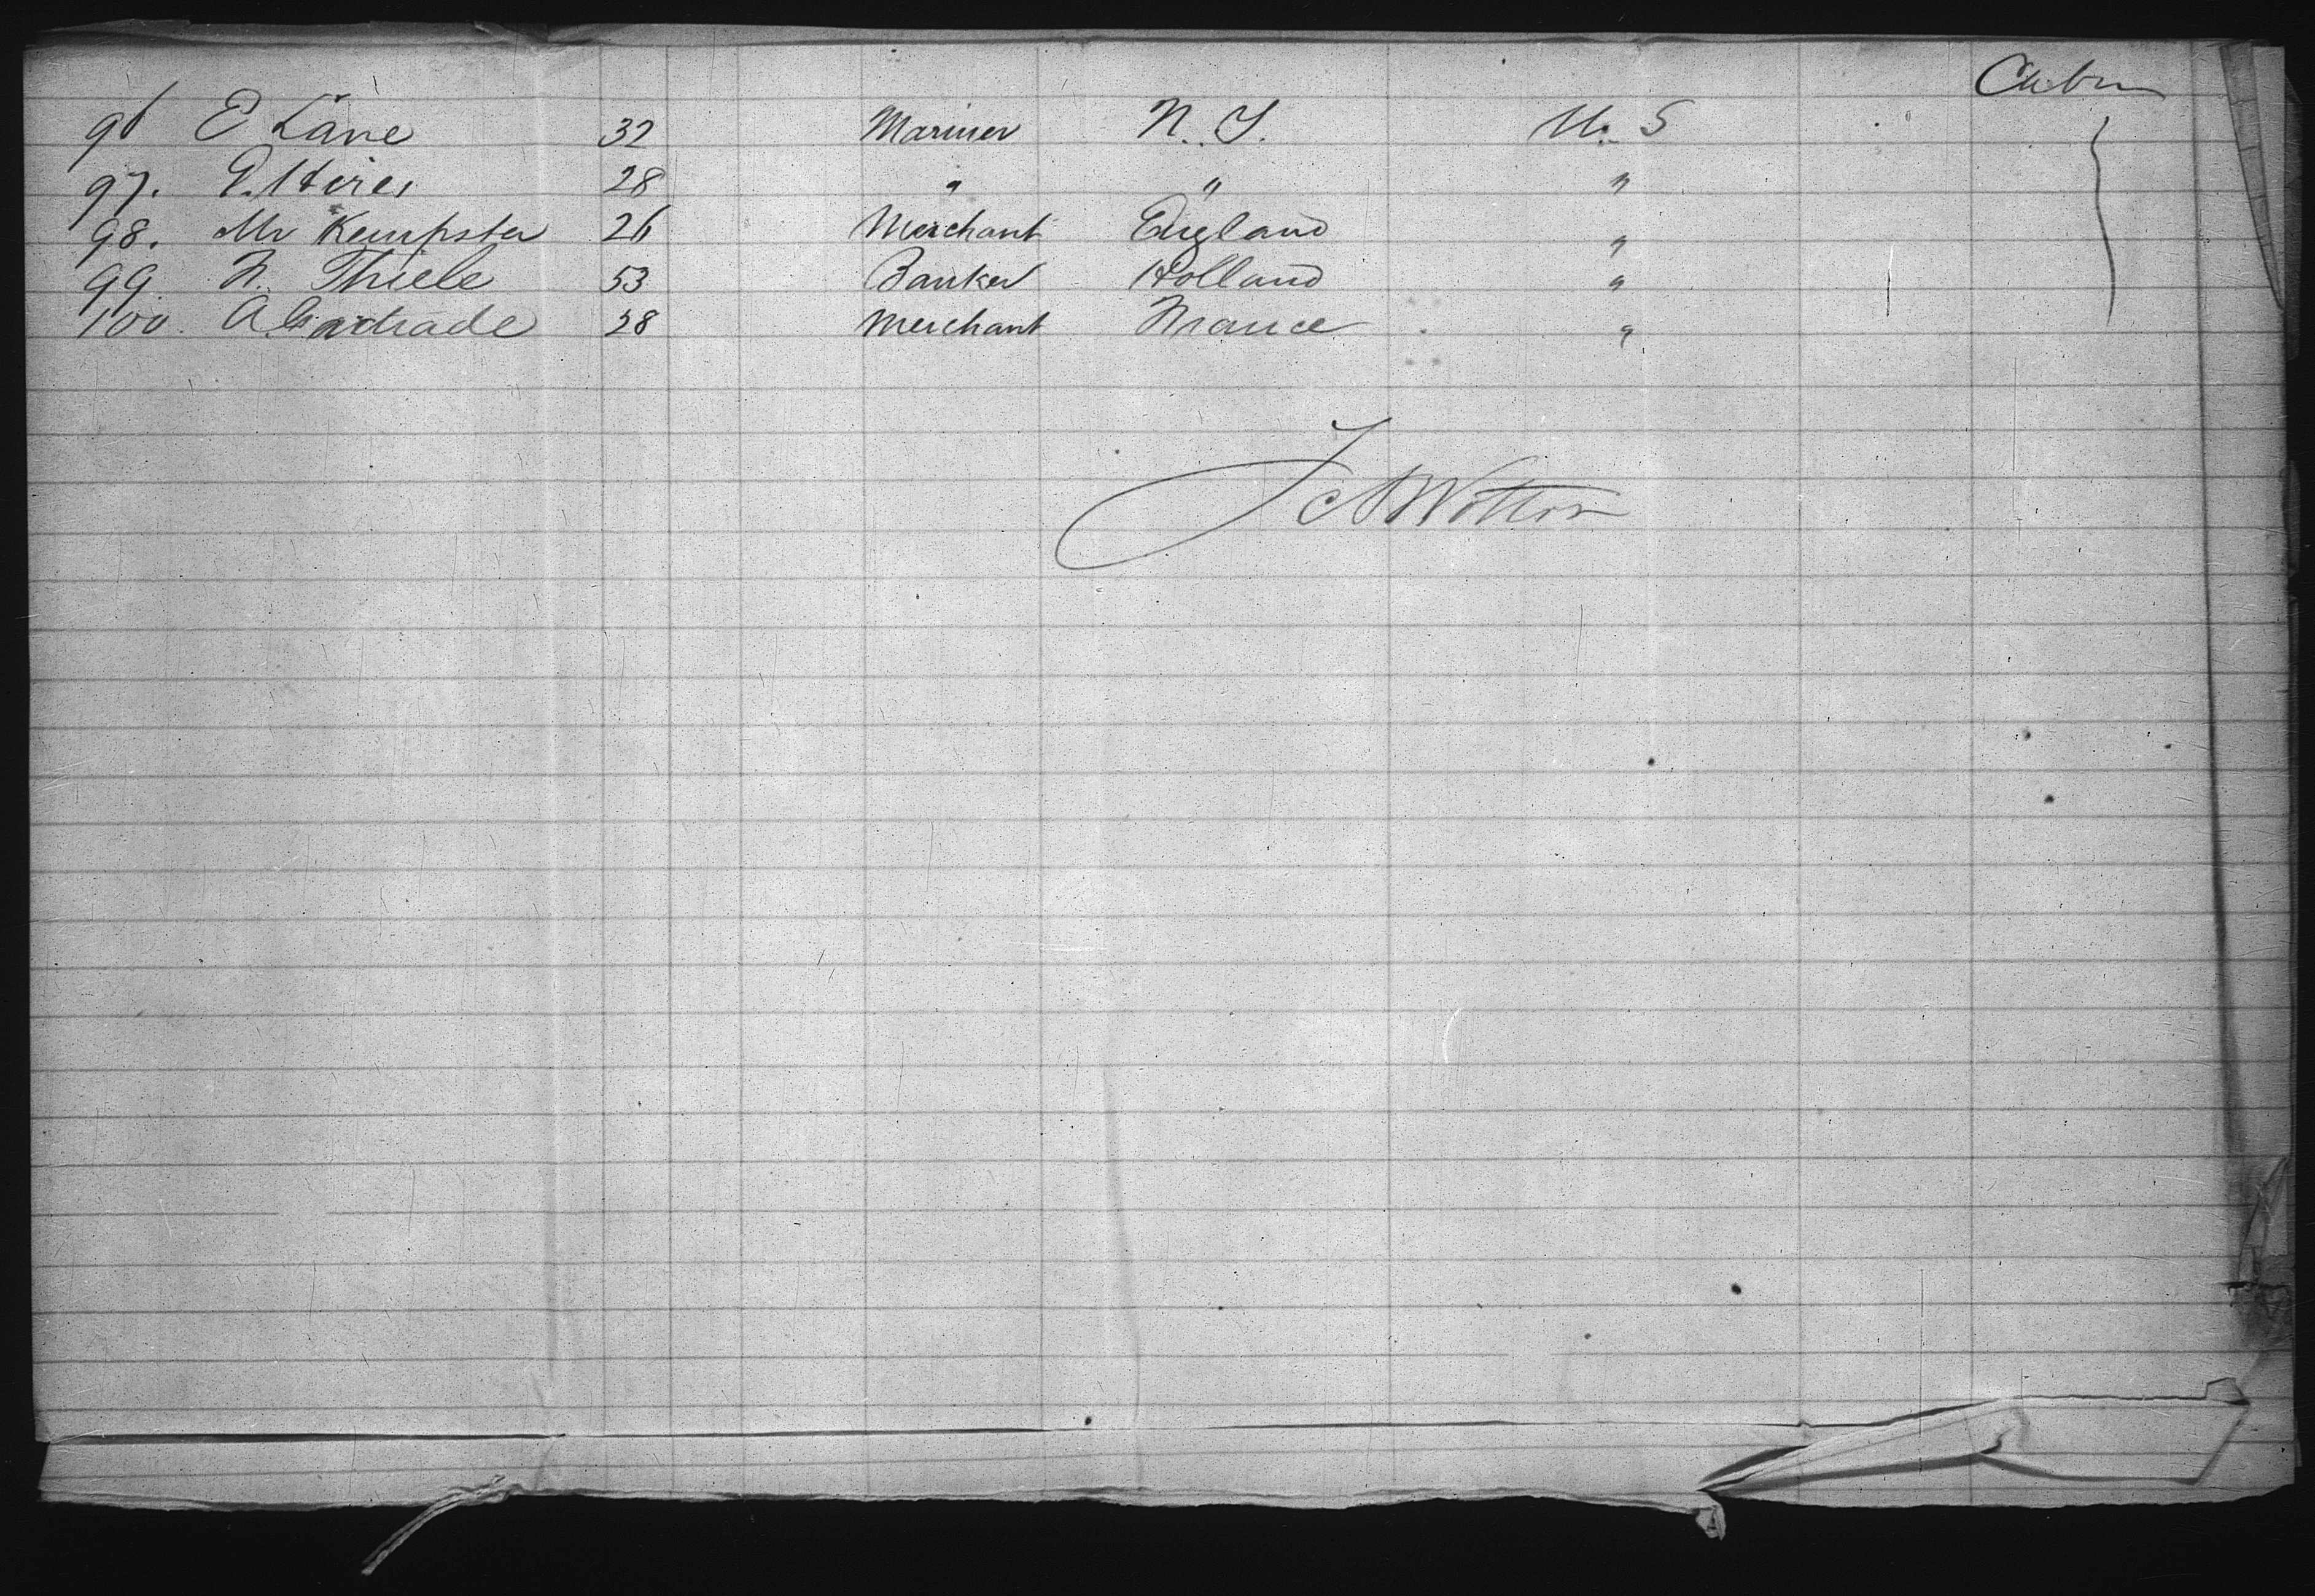 Cabin
96 E Lane 32 Mariner N. J. U. S
97. E. Hires 28 " " "
98. Mr Kempster 26 Merchant England "
99. F. Thiele 53 Banker Holland "
100. A 28 Merchant France "
Wotton